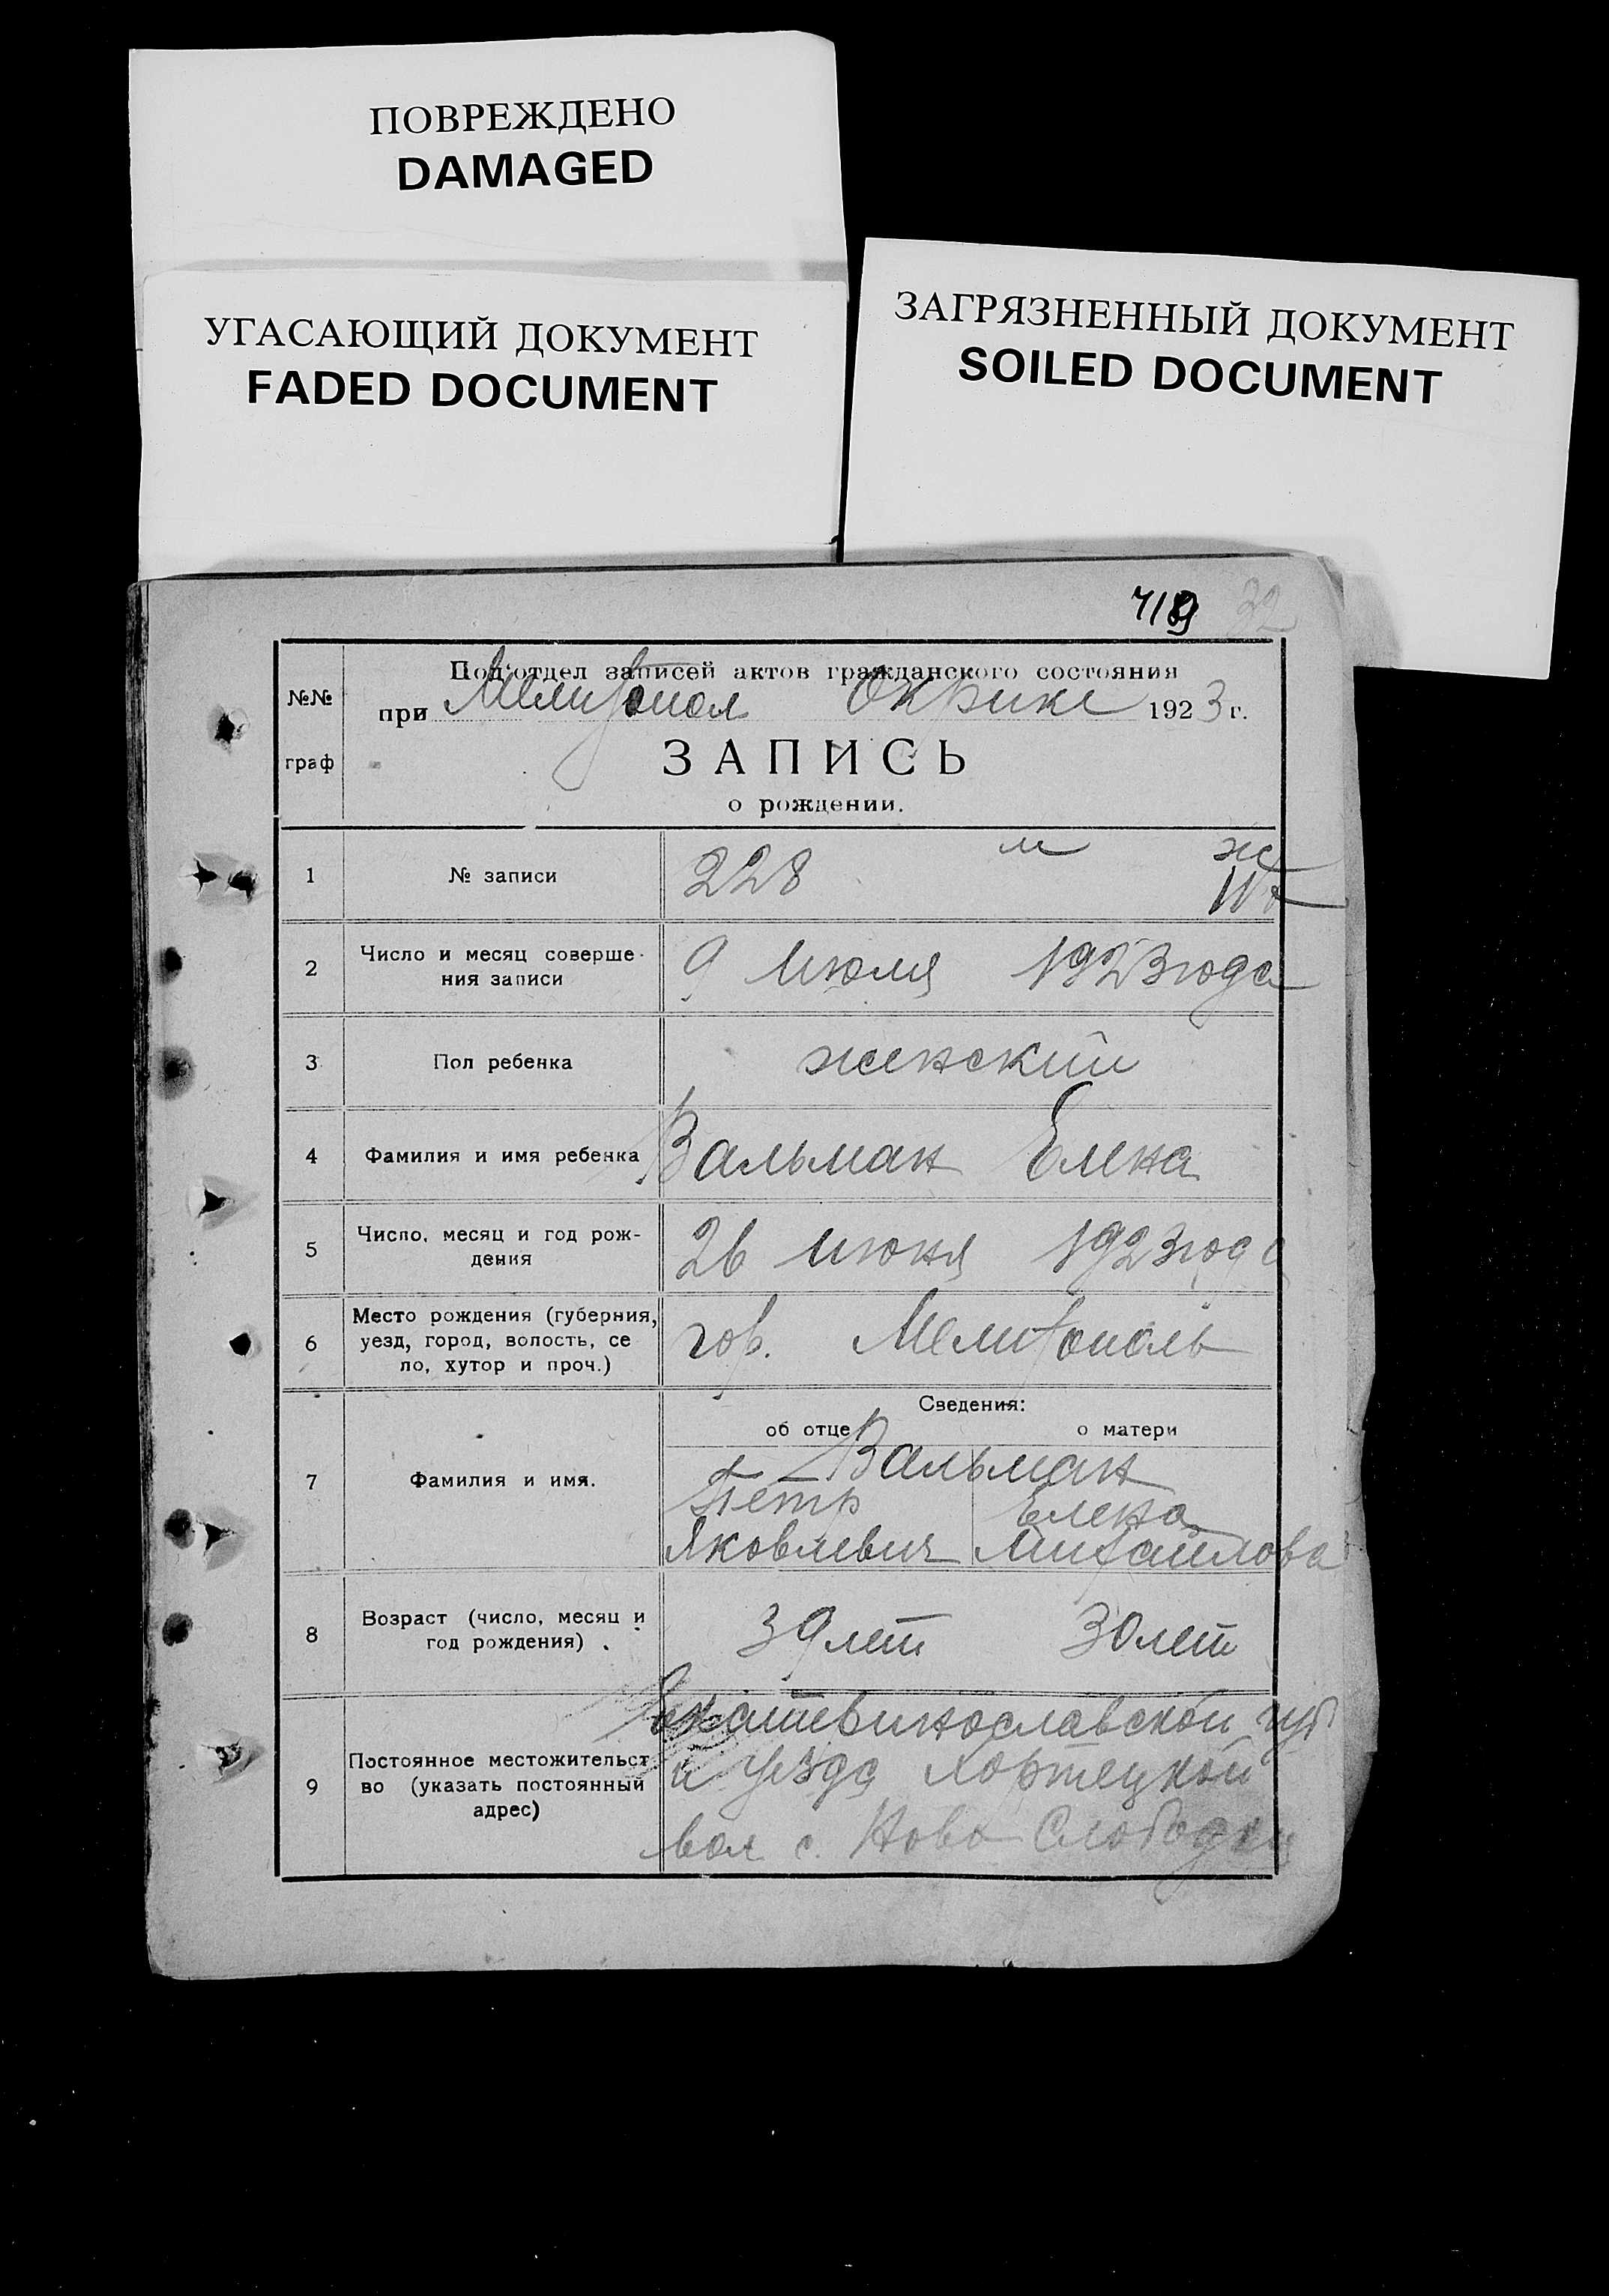 ПОВРЕЖДЕНО
DAMAGED
УГАСАЮЩИЙ ДОКУМЕНТ
FADED DOCUMENT
ЗАГРЯЗНЕННЫЙ ДОКУМЕНТ
SOILED DOCUMENT
32
№№
граф
Под'отдел записей актов гражданского состояния
при Мелитопол Окрике 1923 г.
ЗАПИСЬ
о рождении.
1 № записи 228 м ж
2 Число и месяц соверше-
ния записи 9 Июля 1923 года
3 Пол ребенка женский
4 Фамилия и имя ребенка Вальман Елена
5 Число, месяц и год рож-
дения 26 июня 1923 года
6 Место рождения (губерния,
уезд, город, волость, се
ло, хутор и проч.) гор. Мелитополь
Сведения:
об отце о матери
7 Фамилия и имя. Вальман
Петр Елена
Яковлевич Михайлова
8 Возраст (число, месяц и
год рождения) . 39 лет 30 лет
9 Постоянное местожительст
во (указать постоянный
адрес) Екатеринославской губ
и уезда Хортецкой
вол с. Ново Слободки